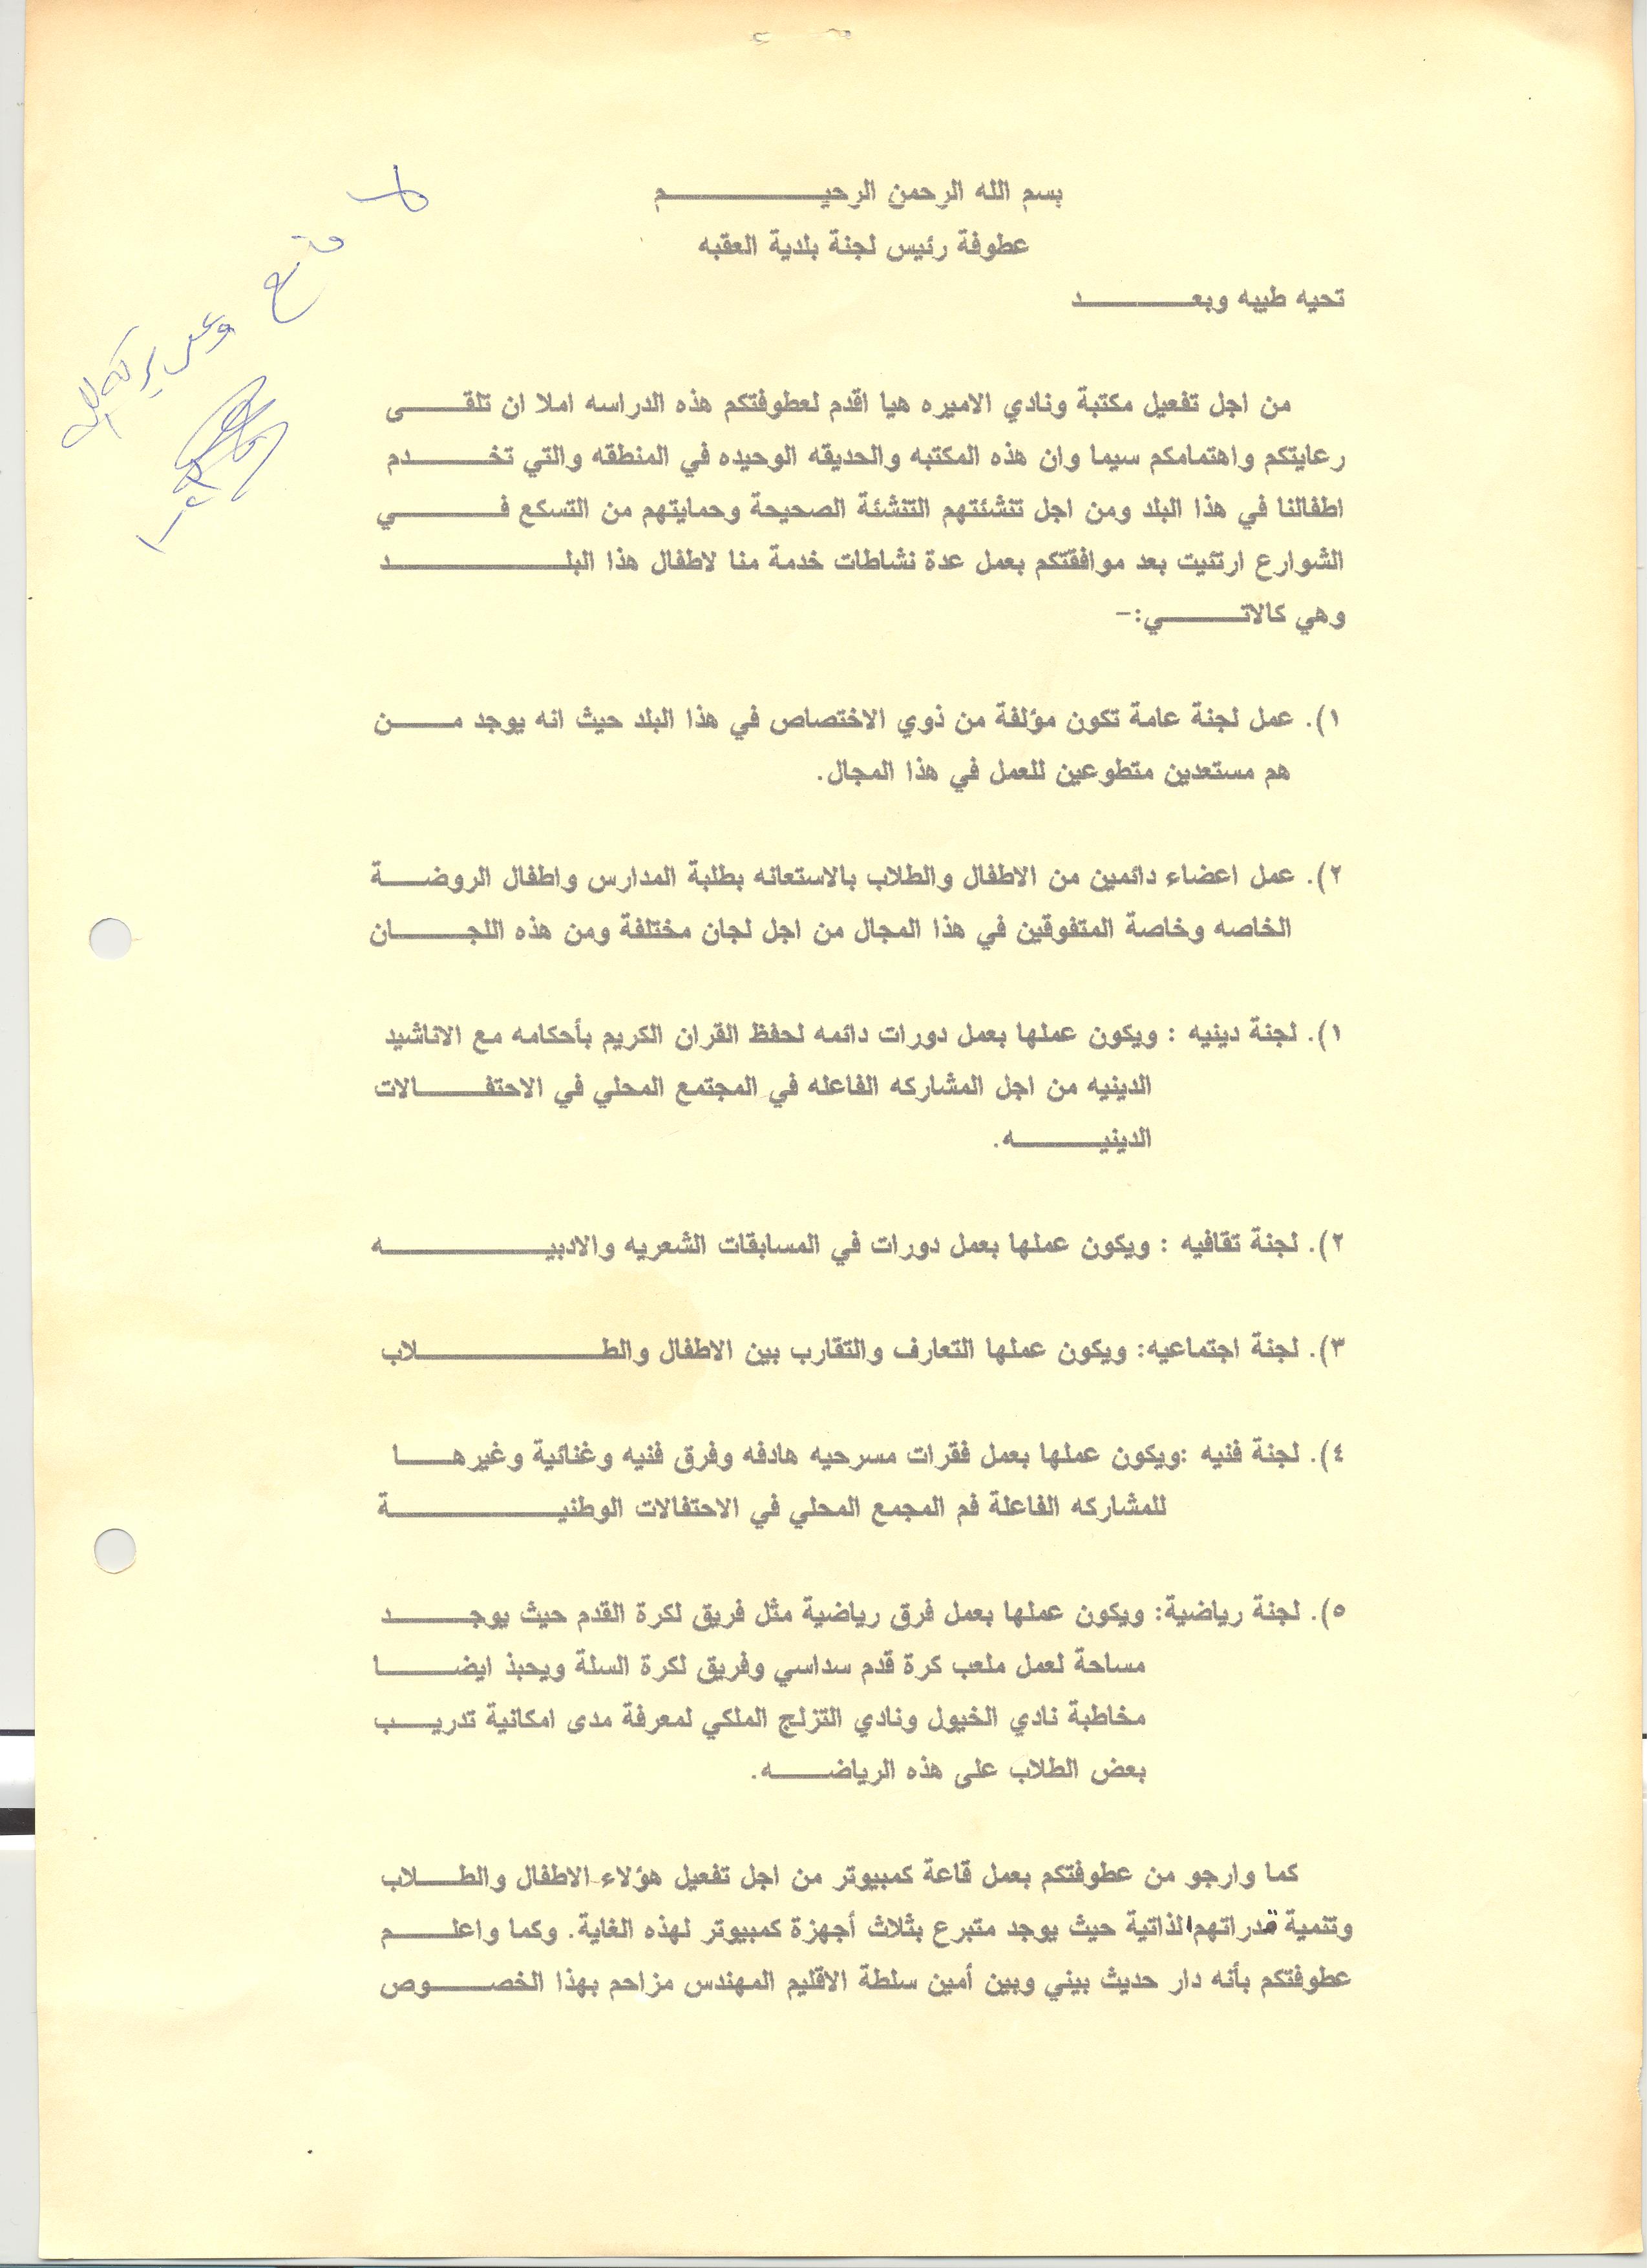 بسم الله الرحمن الرحيـــــــــم
عطوفة رئيس لجنة بلدية العقبه
تحيه طيبه وبعـــــــــد
من اجل تفعيل مكتبة ونادي الاميره هيا اقدم لعطوفتكم هذه الدراسه املا ان تلقــــى
رعايتكم واهتمامكم سيما وان هذه المكتبه والحديقه الوحيده في المنطقه والتي تخـــــدم
اطفالنا في هذا البلد ومن اجل تنشئتهم التنشئة الصحيحة وحمايتهم من التسكع فـــــــي
الشوارع ارتئيت بعد موافقتكم بعمل عدة نشاطات خدمة منا لاطفال هذا البلــــــــــــد
وهي كالاتـــــــي:-
١). عمل لجنة عامة تكون مؤلفة من ذوي الاختصاص في هذا البلد حيث انه يوجد مـــــن
هم مستعدين متطوعين للعمل في هذا المجال.
٢). عمل اعضاء دائمين من الاطفال والطلاب بالاستعانه بطلبة المدارس واطفال الروضـــة
الخاصه وخاصة المتفوقين في هذا المجال من اجل لجان مختلفة ومن هذه اللجـــــان
١). لجنة دينيه : ويكون عملها بعمل دورات دائمه لحفظ القران الكريم بأحكامه مع الاناشيد
الدينيه من اجل المشاركه الفاعله في المجتمع المحلي في الاحتفـــــالات
الدينيـــــــه.
٢). لجنة تقافيه : ويكون عملها بعمل دورات في المسابقات الشعريه والادبيـــــــــــه
٣). لجنة اجتماعيه: ويكون عملها التعارف والتقارب بين الاطفال والطـــــــــــلاب
٤). لجنة فنيه :ويكون عملها بعمل فقرات مسرحيه هادفه وفرق فنيه وغنائية وغيرهـــــا
للمشاركه الفاعلة فم المجمع المحلي في الاحتفالات الوطنيـــــــــــة
٥). لجنة رياضية: ويكون عملها بعمل فرق رياضية مثل فريق لكرة القدم حيث يوجـــــــد
مساحة لعمل ملعب كرة قدم سداسي وفريق لكرة السلة ويحبذ ايضـــــــا
مخاطبة نادي الخيول ونادي التزلج الملكي لمعرفة مدى امكانية تدريـــــب
بعض الطلاب على هذه الرياضـــــه.
كما وارجو من عطوفتكم بعمل قاعة كمبيوتر من اجل تفعيل هؤلاء الاطفال والطـــــلاب
وتنمية قدراتهم الذاتية حيث يوجد متبرع بثلاث أجهزة كمبيوتر لهذه الغاية. وكما واعلـــــم
عطوفتكم بأنه دار حديث بيني وبين أمين سلطة الاقليم المهندس مزاحم بهذا الخصـــــوص
لا مانع وعلى بركة الله